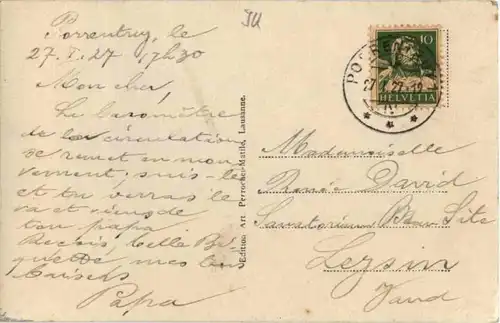 JU
Porrentruy, le
27. I. 27 17h30
Mon cher,
Le baromètre
de la circulation
se remet en mou
vement; suis-le
et tu verras le
va et viens de
ton papa
Reçois, belle
mes bons
baisers
Papa
Edition Art. Perrochet-Matile, Lausanne.
10
HELVETIA
Mademoiselle
Renée David
Sanatorium Beau Site
Leysin
Vaud